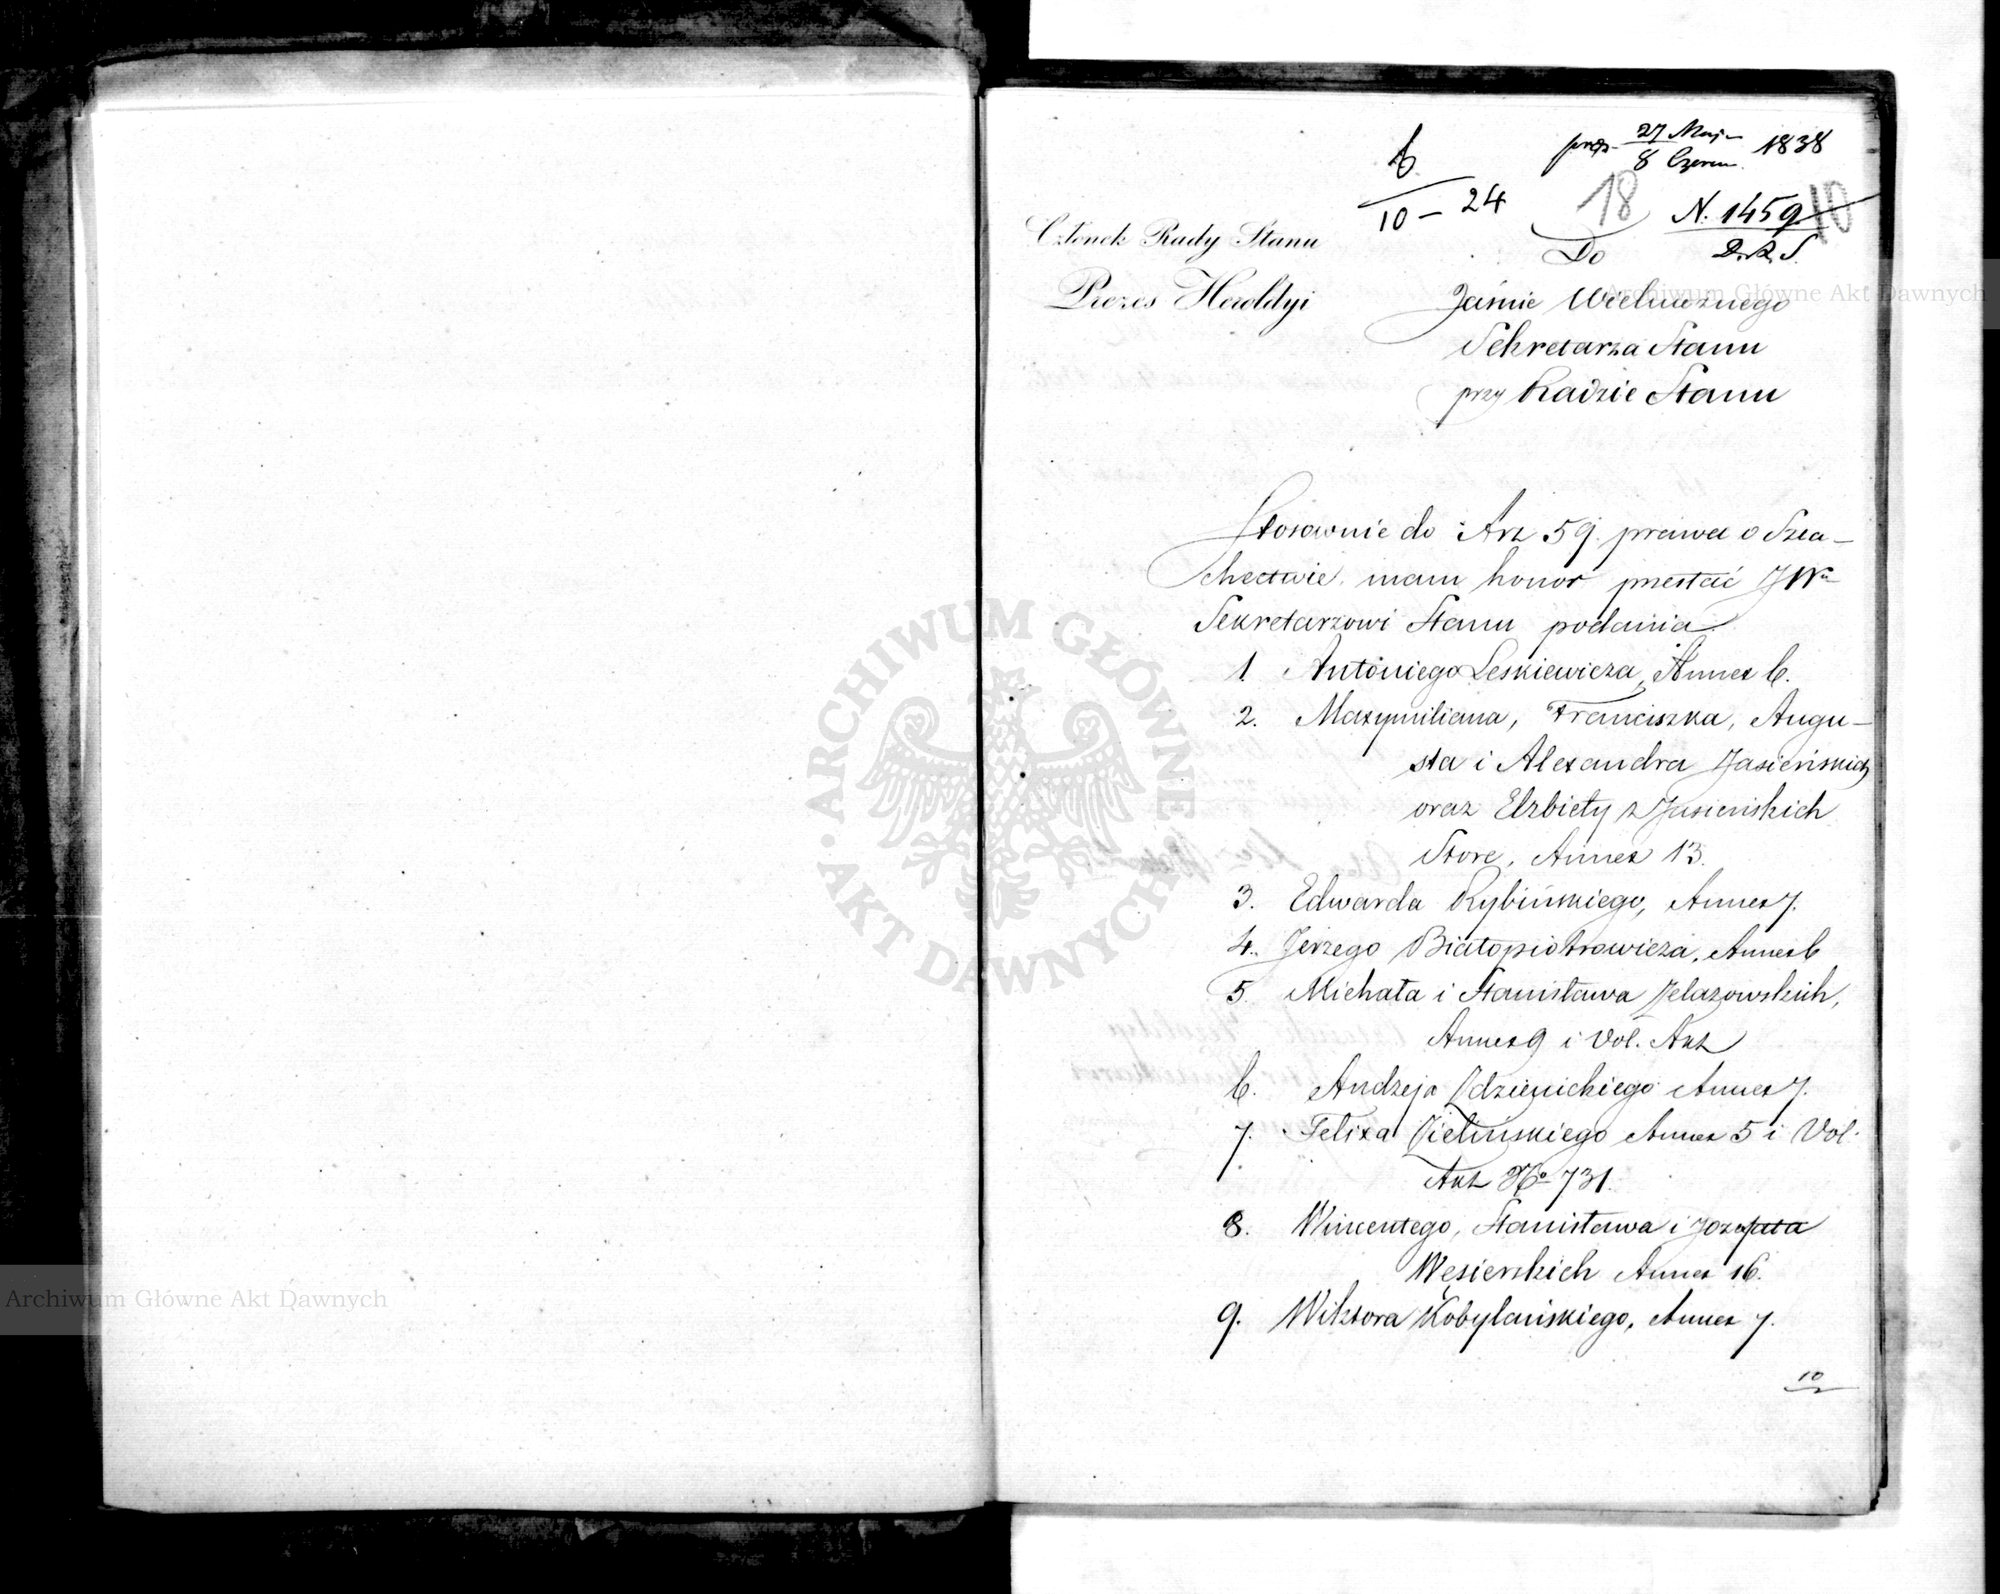 27 Maja
8 Czerw. 1838
6
10 - 24
18
N. 1459
10
D.R.S.
Członek Rady Stanu
Prezes Heroldyi
Do
Jaśnie Wielmożnego
Sekretarza Stanu
przy Radzie Stanu
Stosownie do Art 59. prawa o Szla-
chectwie mam honor przesłać JW
Sekretarzowi Stanu podania
1. Antoniego Leskiewicza, Annex 6.
2. Maxymiliana, Franciszka, Augu-
sta i Alexandra Jasieńskich
oraz Elzbiety z Jasieńskich
Annex 13.
3. Edwarda Rybińskiego, Annex 7.
4. Jerzego Białopiotrowicza, Annex 6
5. Michała i Stanisława Zelazowskich,
Annex 9 i Vol. Akt
6. Andrzeja Odzienickiego Annex 7.
7. Felixa Zielińskiego Annex 5 i Vol.
Akt No 731.
8. Wincentego, Stanisława i Jozafata
Węsierskich Annex 16.
9. Wiktora Kobylańskiego, Annex 7.
10
Archiwum Główne Akt Dawnych
Archiwum Główne Akt Dawnych
ARCHIWUM GŁÓWNE AKT DAWNYCH